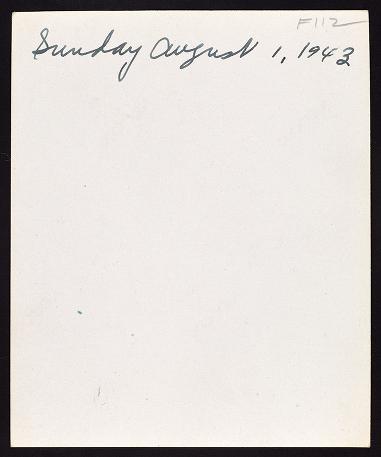 F112
Sunday August 1, 1943